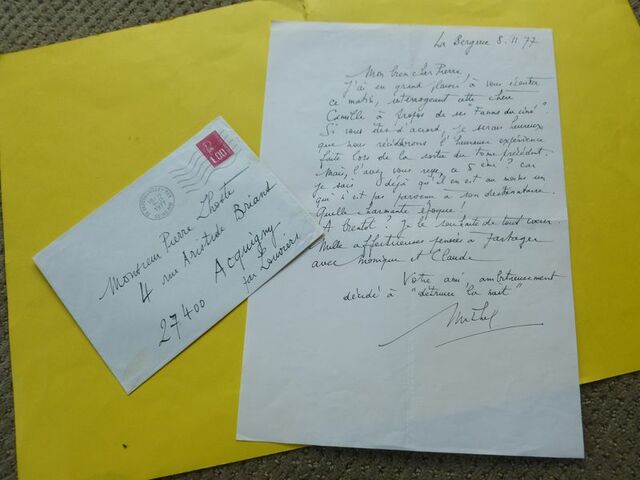 La Bergerie 8.11.77
Mon bien cher Pierre,
J'ai eu grand plaisir à vous écouter
ce matin, interrogeant cette chère
Camille à propos de ses "Fanas du ciné".
Si vous êtes d'accord, je serais heureux
que nous rééditerions l'heureuse expérience
faite lors de la sortie du tome précédent.
Mais, l'avez vous reçu, ce 5 ème? car
je sais déjà qu'il en est au moins un
qui n'est pas parvenu à son destinataire.
Quelle charmante époque!
A bientôt? Je le souhaite de tout cœur
Mille affectueuses pensées à partager
avec Monique et Claude
Votre ami ambitieusement
décidé à "détruire la nuit"
Michel
1.00
1977
Monsieur Pierre Lhoste
4 rue Aristide Briand
27400 Acquigny
par Louviers